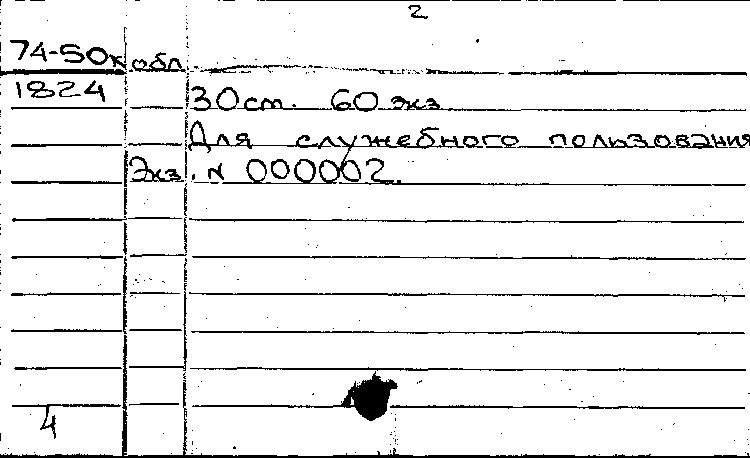 2
74-50к обл.
1824 30 см. 60 экз.
Для служебного пользования
Экз. N 000002.
4